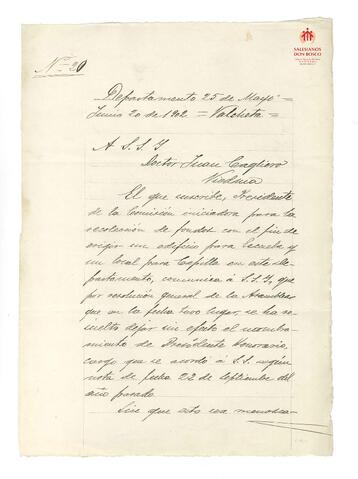 SALESIANOS
DON BOSCO
Nº 20
Departamento 25 de Mayo =
Junio 20 de 1902 = Valcheta =
A S. S. I.
Doctor Juan Cagliero
Viedma
El que suscribe, Presidente
de la Comisión iniciadora para la
recolección de fondos con el fin de
erigir un edificio para Escuela y
un local para Capilla en este De-
partamento, comunica á S.S.I, que
por resolución general de la Asamblea
que en la fecha tuvo lugar, se ha re-
suelto dejar sin efecto el nombra-
miento de Presidente Honorario,
cargo que se acordó á S.S. según
nota de fecha 22 de Septiembre del
año pasado.
Sin que esto sea menosca-